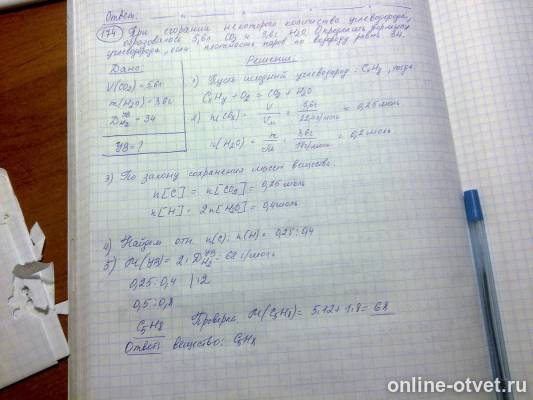 Ответ:
174 При сгорании некоторого количества углеводорода,
образовалось 5,6л CO2 и 3,6г H2O. Определить формулу
углеводорода, если плотность паров по водороду равна 34.
Дано:
V(CO2) = 5,6л
m(H2O) = 3,6г
D H2 УВ = 34
УВ = ?
Решение:
1) Пусть исходный углеводород - CxHy, тогда
CxHy + O2 = CO2 + H2O
2) n(CO2) = V/Vm = 5,6л/22,4л/моль = 0,25 моль
n(H2O) = m/M = 3,6г/18г/моль = 0,2 моль
3) По закону сохранения масс веществ:
n[C] = n[CO2] = 0,25 моль
n[H] = 2n[H2O] = 0,4 моль
4) Найдем отн. n(C) : n(H) = 0,25 : 0,4
5) M(УВ) = 2 · D H2 УВ = 68 г/моль
0,25 : 0,4 | ·2
0,5 : 0,8
C5H8 Проверка M(C5H8) = 5·12 + 1·8 = 68
Ответ: вещество: C5H8
online-otvet.ru